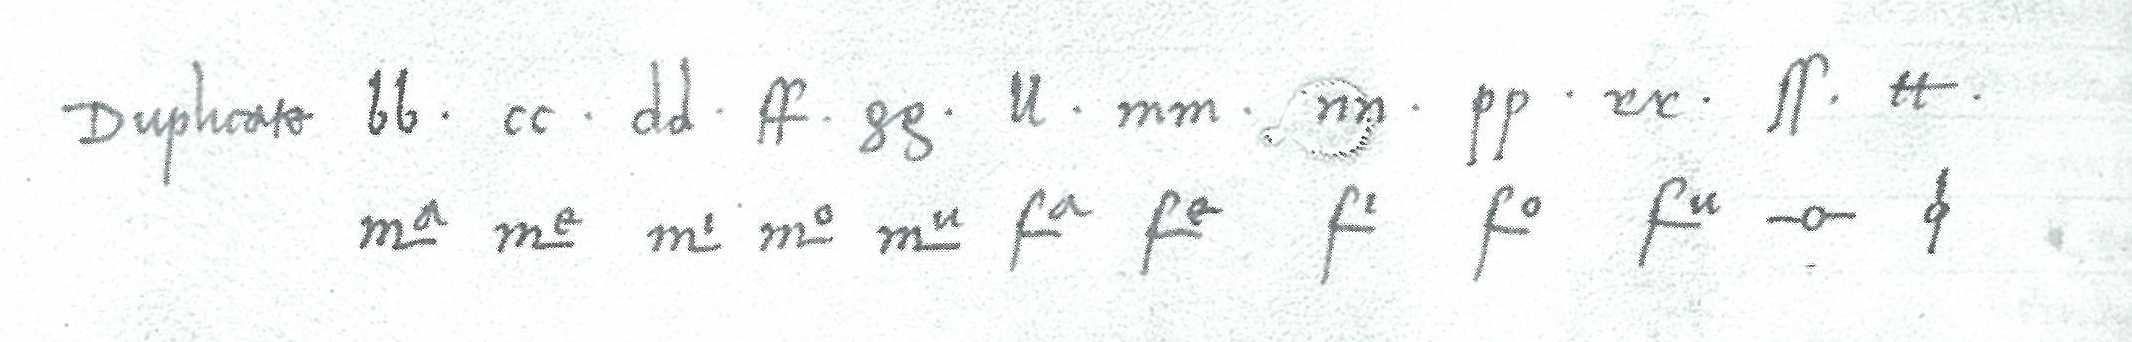 Duplicate bb . cc . dd . ff . gg . ll . mm . nn . pp . rr . ſſ . tt .
mᵃ mᵉ mⁱ mᵒ mᵘ fᵃ fᵉ fⁱ fᵒ fᵘ